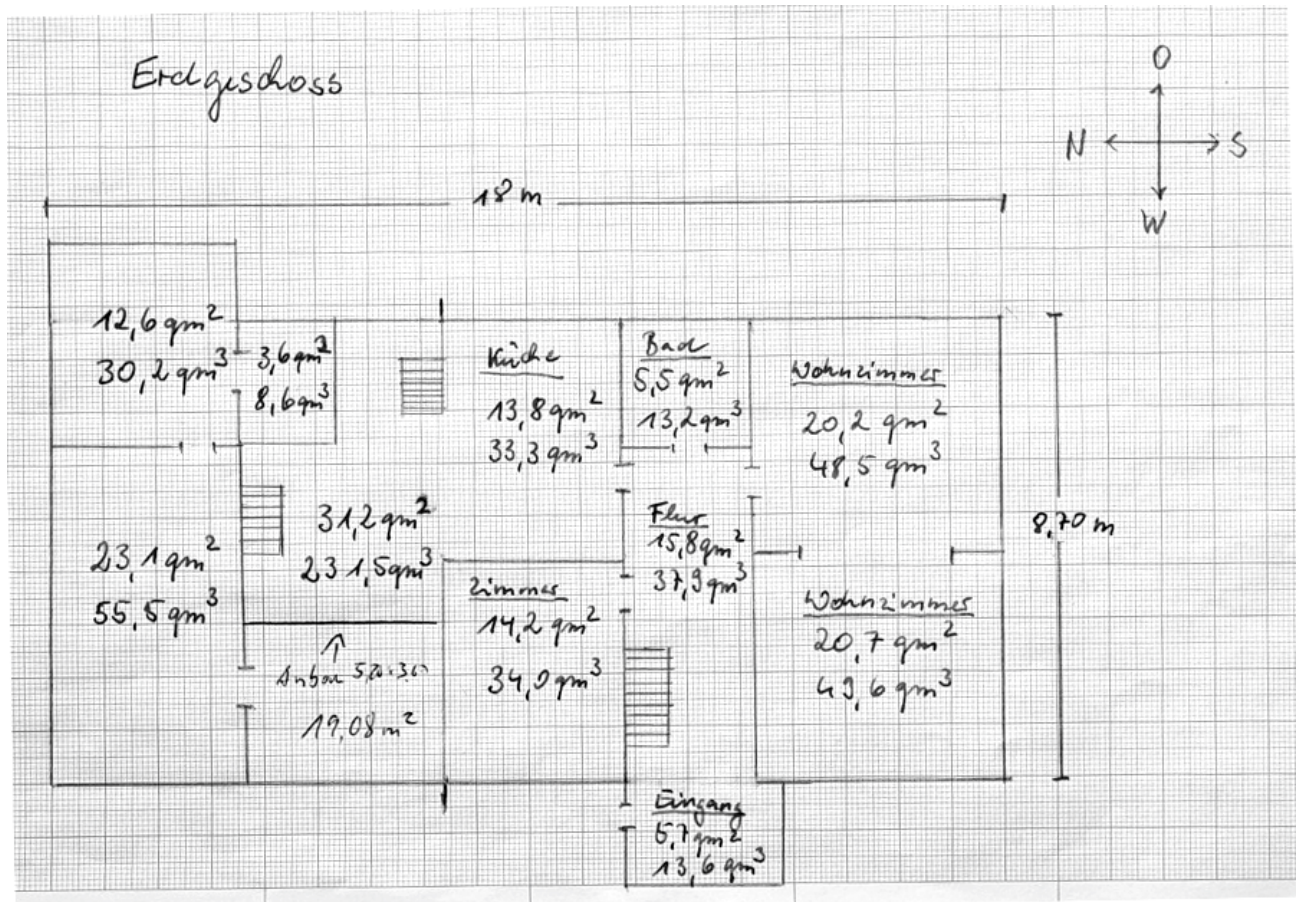 Erdgeschoss
O
N
S
W
18 m
12,6 qm²
30,2 qm³
3,6 qm²
8,6 qm³
Küche
13,8 qm²
33,3 qm³
Bad
5,5 qm²
13,2 qm³
Wohnzimmer
20,2 qm²
48,5 qm³
8,70 m
23,1 qm²
55,5 qm³
31,2 qm²
231,5 qm³
Flur
15,8 qm²
37,9 qm³
Zimmer
14,2 qm²
34,0 qm³
Wohnzimmer
20,7 qm²
49,6 qm³
Anbau
19,08 m²
Eingang
5,7 qm²
13,6 qm³